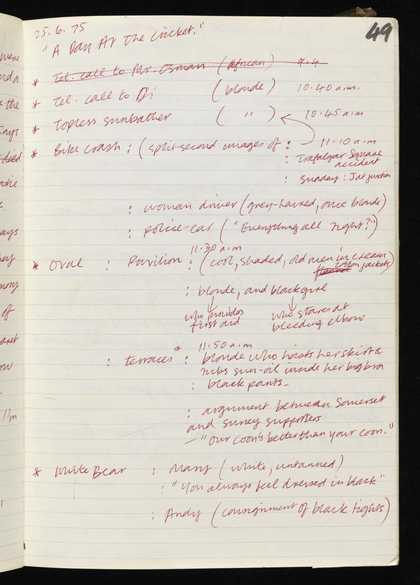 49
25.6.75
"A Day At The Cricket."
* Tel. call to Mr. Osman (African) 9.4
* Tel. call to Di (blonde) 10.40 a.m.
* Topless sunbather ( " ) 10.45 a.m
* Bike crash : (split-second images of : 11.10 a.m
: Trafalgar Square
accident
: Sunday : Jet justin
: woman driver (grey-haired, once blonde)
: police-car ("Everything all right?")
11.30 a.m
* Oval : Pavilion : (cool, shaded, old men in cream
jackets)
: blonde, and black girl
who provides
first aid
who stares at
bleeding elbow
11.50 a.m
: terraces : blonde who hoists her skirt &
rubs sun-oil inside her big bra
: black pants.
: argument between Somerset
and Surrey supporters
- "Our coon's better than your coon."
* White Bear : Mary (white, untanned)
: "You always feel dressed in black"
: Andy (consignment of black tights)